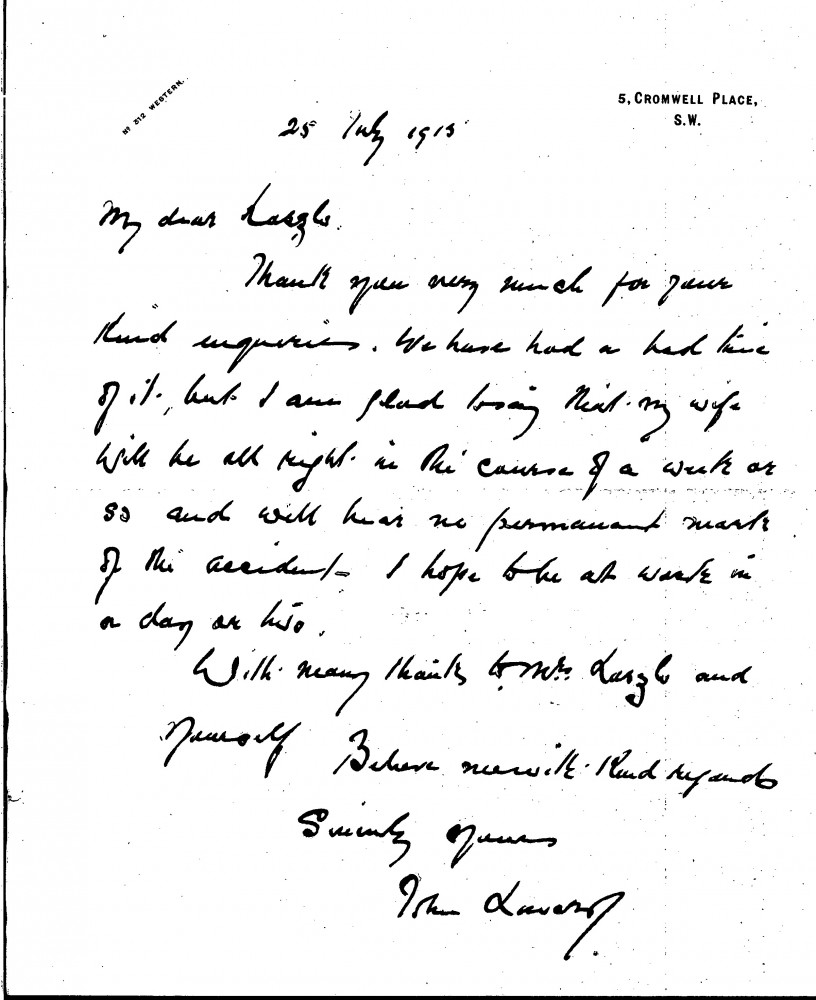 Nº 312 WESTERN.
5, CROMWELL PLACE,
S.W.
25 July 1913
My dear Laszlo.
Thank you very much for your
kind enqueries. We have had a bad time
of it, but I am glad to say that my wife
will be all right in the course of a week or
so and will bear no permanant mark
of the accident – I hope to be at work in
a day or two.
With many thanks to Mrs. Laszlo and
yourself Believe me with kind regards
Sincerely yours
John Lavery